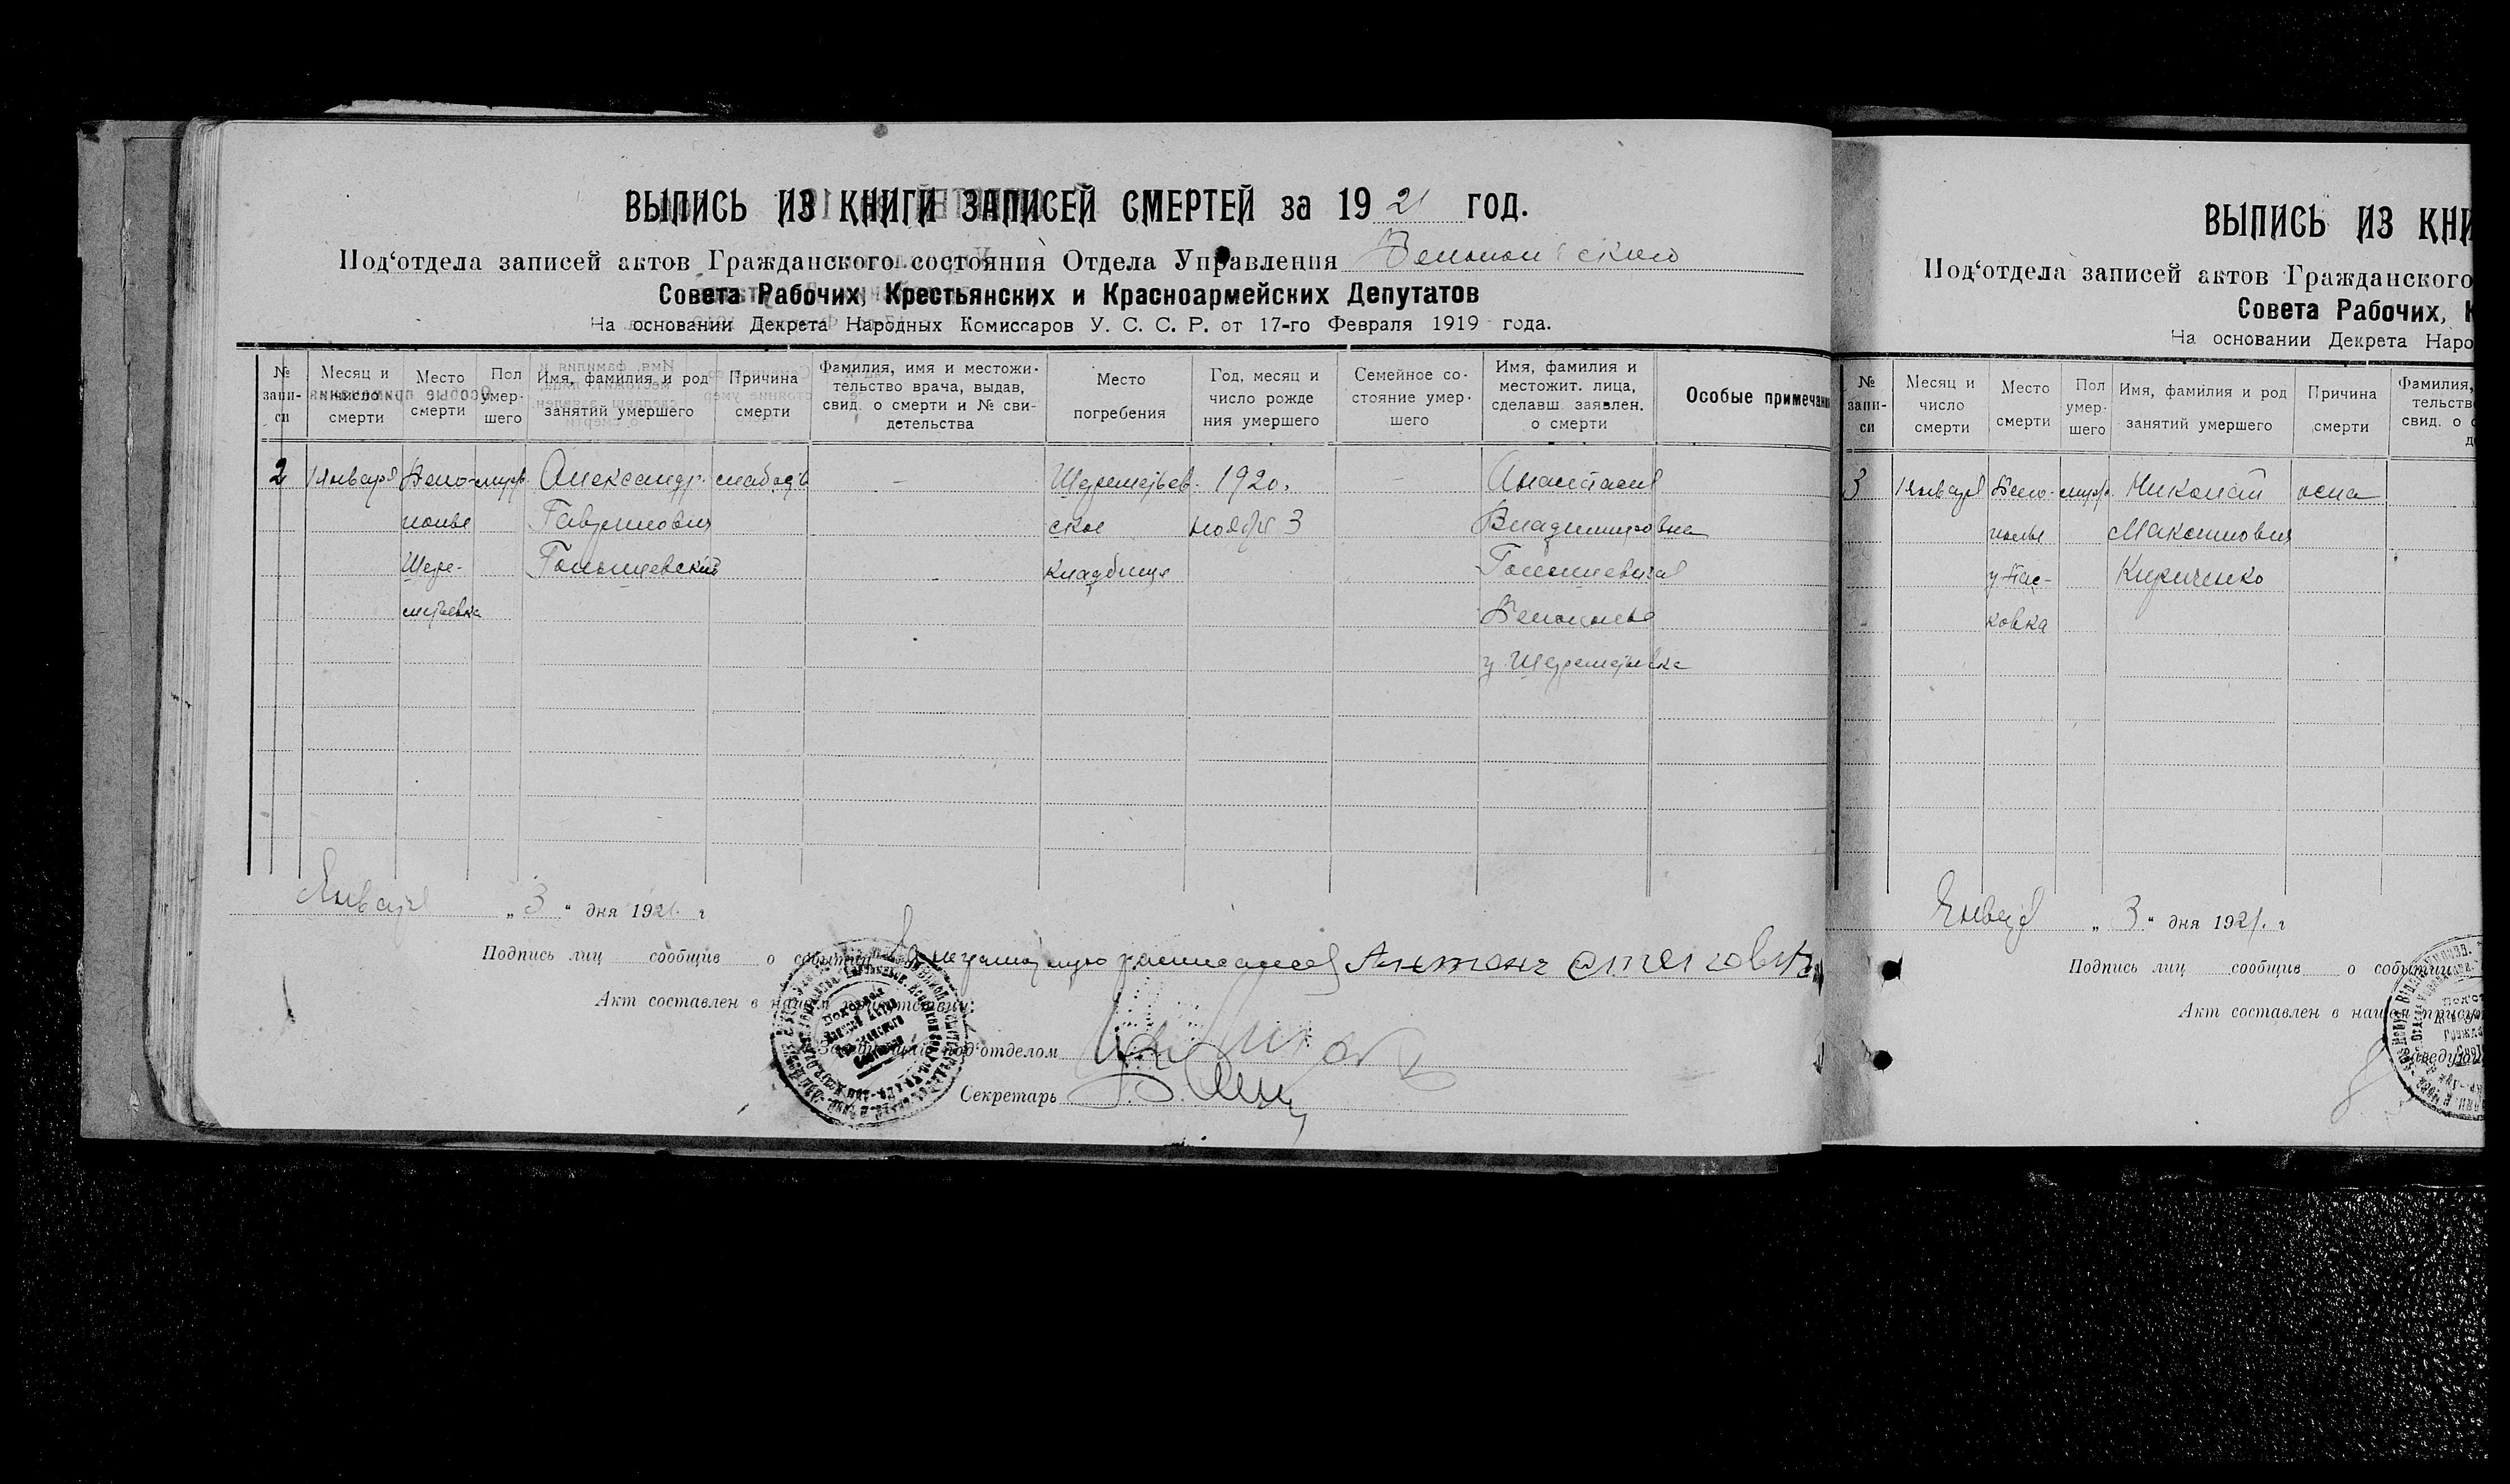 ВЫПИСЬ ИЗ КНИГИ ЗАПИСЕЙ СМЕРТЕЙ за 1921 ГОД.
Под‘отдела записей актов Гражданского состояния Отдела Управления
Совета Рабочих, Крестьянских и Красноармейских Депутатов
На основании Декрета Народных Комиссаров У. С. С. Р. от 17-го Февраля 1919 года.
№ запи-си
Месяц и число смерти
Место смерти
Пол умер-шего
Имя, фамилия и род занятий умершего
Причина смерти
Фамилия, имя и местожи-тельство врача, выдав. свид. о смерти и № сви-детельства
Место погребения
Год, месяц и число рожде ния умершего
Семейное со-стояние умер-шего
Имя, фамилия и местожит. лица, сделавш. заявлен. о смерти
Особые примечани
2 1 января Бело- муж. Александр — Шереметьев- 1920. — Анастасия
полье Гаврилович ское нояб. 3 Владимировна
Шере- Голышевский кладбище
метьевка Белополье
у Шереметьевка
Января „3“ дня 1921. г
Подпись лиц сообщив о событии За неграмотную расписался Антонъ
Акт составлен в нашем присутствии:
под‘отделом
Секретарь
ВЫПИСЬ ИЗ КНИ
Под‘отдела записей актов Гражданского
Совета Рабочих, К
На основании Декрета Наро
№ запи-си
Месяц и число смерти
Место смерти
Пол умер-шего
Имя, фамилия и род занятий умершего
Причина смерти
Фамилия,
тельств
свид. о с
3 1 января Бело- муж. Николай оспа
полье Максимович
Кириченко
ковка
Января „3“ дня 1921. г
Подпись лиц сообщив о событии
Акт составлен в нашем присут